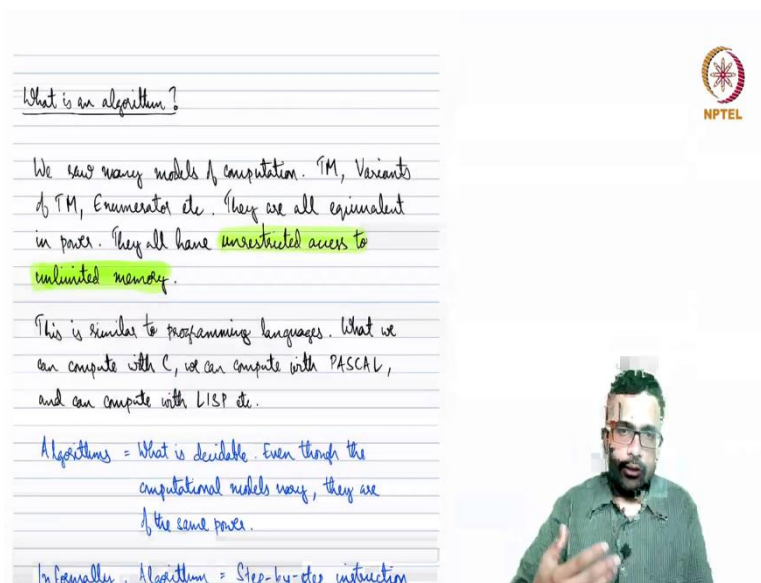 What is an algorithm?
We saw many models of computation. TM, Variants
of TM, Enumerator etc. They are all equivalent
in power. They all have unrestricted access to
unlimited memory.
This is similar to programming languages. What we
can compute with C, we can compute with PASCAL,
and can compute with LISP etc.
Algorithms = What is decidable. Even though the
computational models vary, they are
of the same power.
Informally, Algorithm = Step-by-step instruction
NPTEL